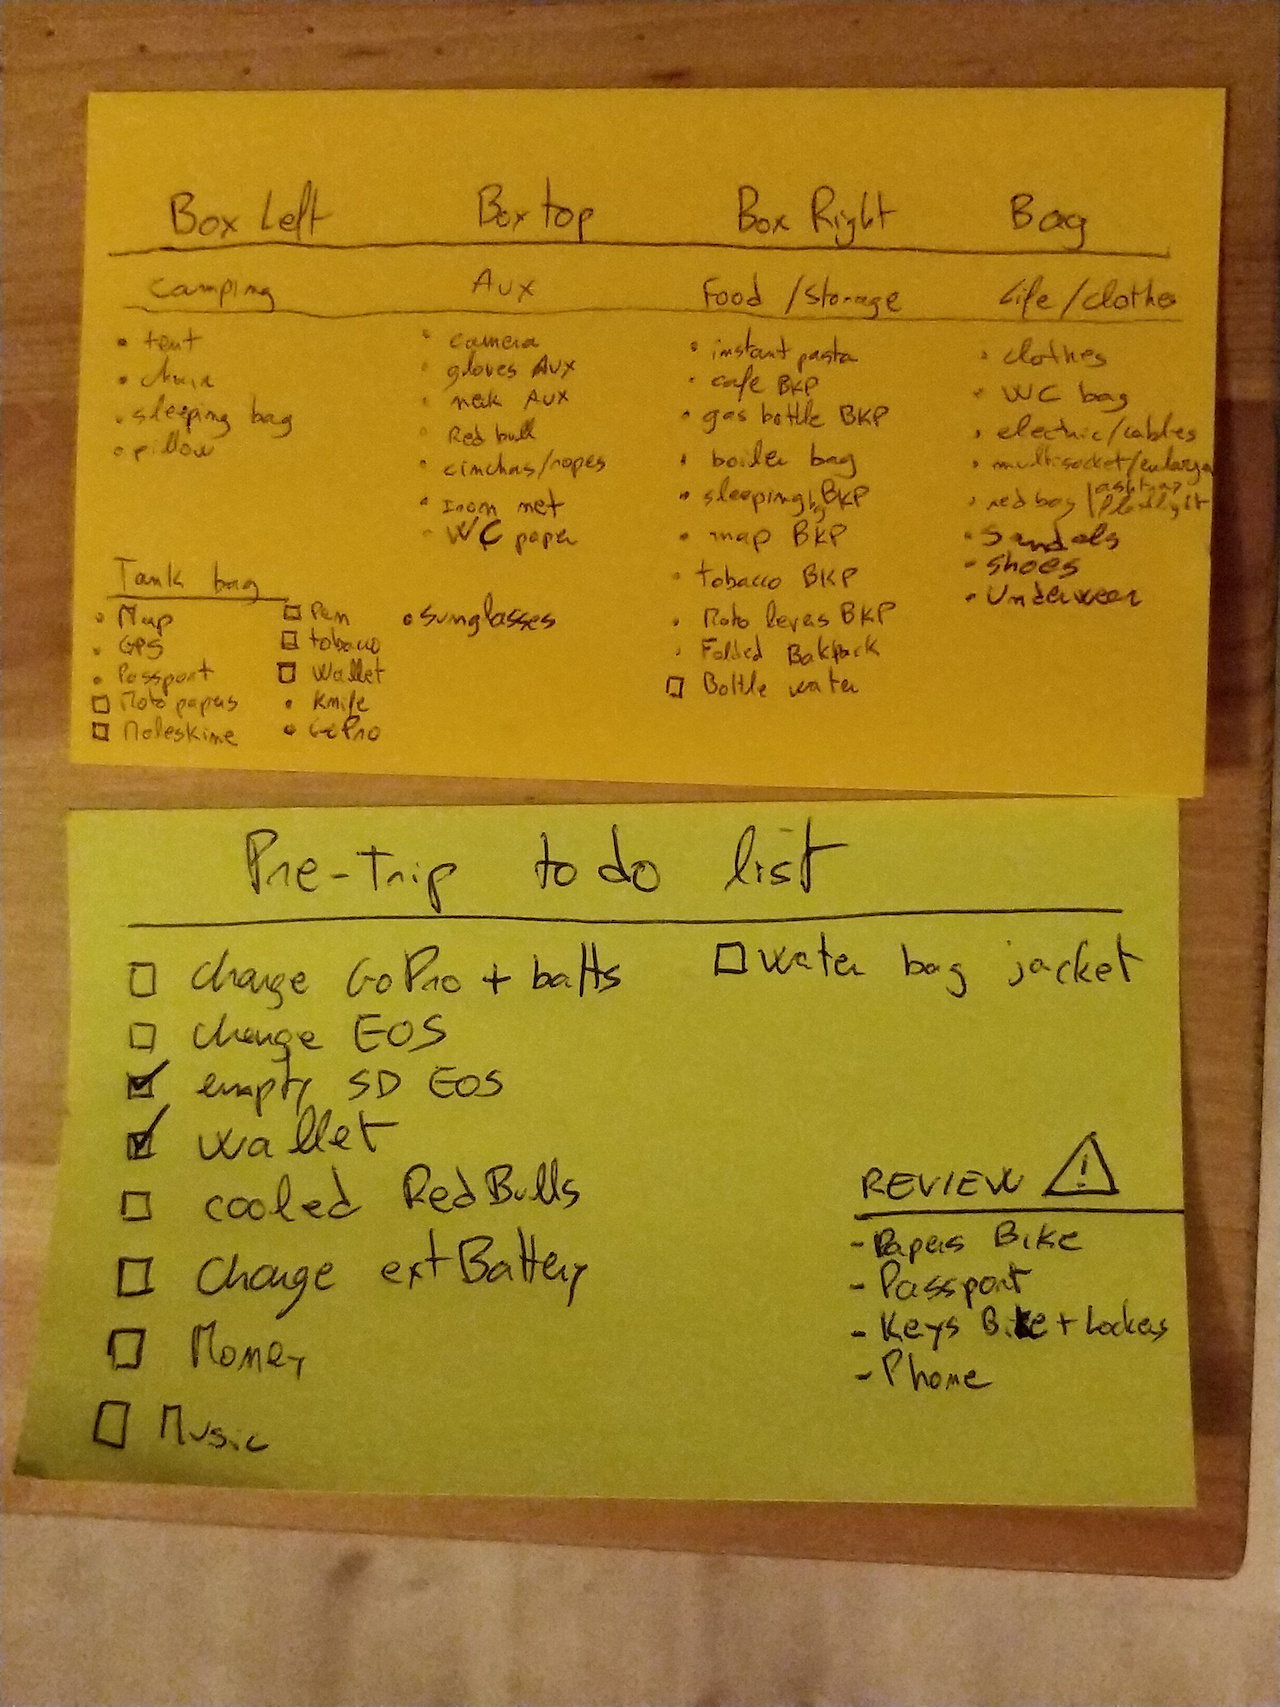 Box Left
Camping
• tent
• chair
• sleeping bag
• pillow
Box top
Aux
• camera
• gloves AUX
• neck AUX
• Red bull
• cinchas/ropes
• Iron net
• WC paper
• sunglasses
Box Right
Food / Storage
• instant pasta
• cafe BKP
• gas bottle BKP
• boiler bag
• sleeping bg BKP
• map BKP
• tobacco BKP
• Moto leves BKP
• Folded Bakpack
☐ Bottle water
Bag
Life / clothes
• clothes
• WC bag
• electric/cables
• multisocket/
• red bag |
• Sandals
• Shoes
• Underwear
Tank bag
• Map
• GPS
• Passport
☐ Moto papers
☐ Moleskine
☐ Pen
☐ tobacco
☐ Wallet
• Knife
• GoPro
Pre-Trip to do list
☐ charge GoPro + batts
☐ charge EOS
☑ empty SD EOS
☑ wallet
☐ cooled RedBulls
☐ Charge ext Battery
☐ Money
☐ Music
☐ water bag jacket
REVIEW ⚠
- Papers Bike
- Passport
- Keys Bike + Lockers
- Phone